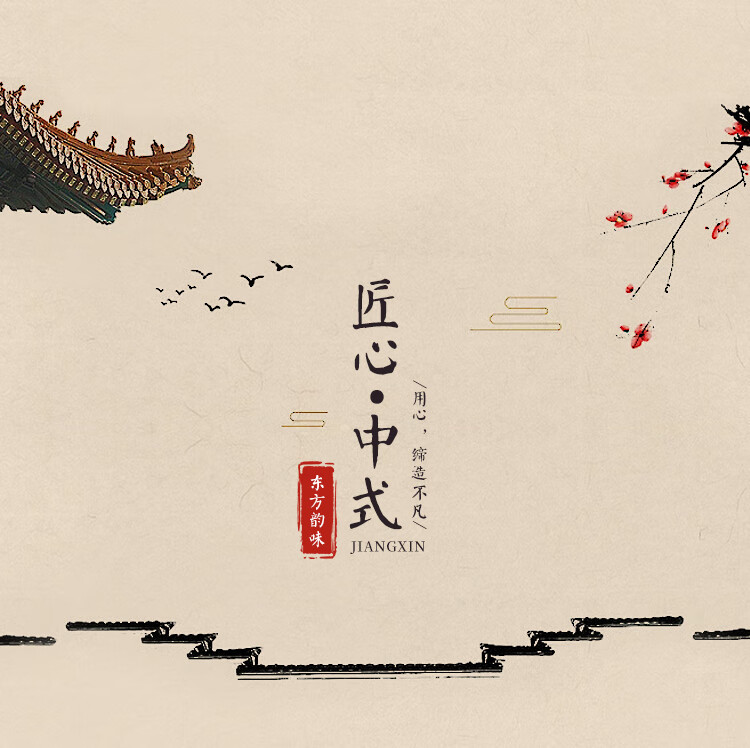 匠心·中式
/用心，缔造不凡/
东方韵味
JIANGXIN